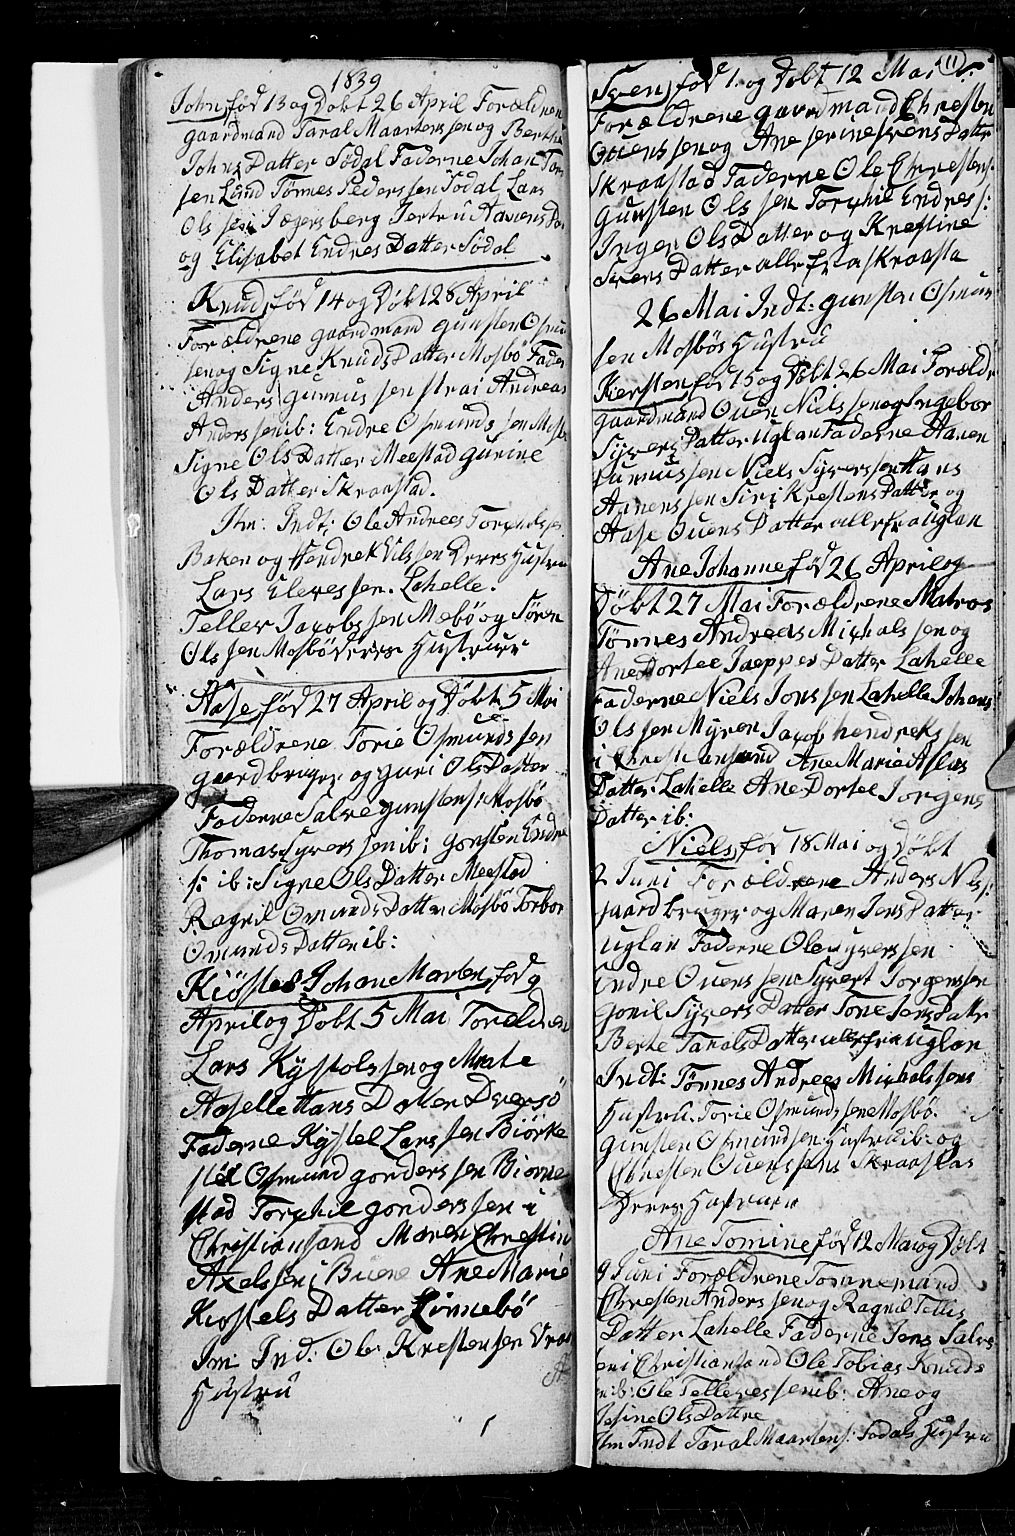 1839
John, fød 13 og Døbt 26 April Forældren
gaardmand Taral Maartenssen og Berthe
Johns Datter Sødal Faderne Johan Tom
sen Lund Tønnes Pederssen Sødal Lars
Olssen Jægersberg Jertru Aanens Dat
og Elisabet Endres Datter Sødal
Knud, fød 14 og Døbt 28 April
Forældrene gaardmand gunsten Osmund
sen og Signe Knuds Datter Mosbø Fader
Anders gunnussen strai Andreas
Anderssen ib: Endre Osmundssen Mosb
Signe Ols Datter Meestad gurine
Ols Datter Skraastad.
Im: Indt: Ole Andrees Torkelsse
Baken og Hendrek Nilssen Deres Hustru
Lars Elevessen. Lahelle.
Tellev Jacobssen Mebø og Søren
Olssen Mosbø Deres Hustruer
Aase, fød 27 April og Døbt 5 Mai
Forældrene Torie Osmundssen
gaardbruger og guri Ols Datter
Faderne Salve gunstens: Mosbø
Thomas Syverssen ib: gonsten Endre
s: ib: Signe Ols Datter Meestad
Ragnil Omunds Datter Mosbø Torbor
Omunds Datter ib:
Kiøstel Johan Marten, fød 9
April og Døbt 5 Mai Foreldren
Lars Kystolssen og Marte
Aaselle Hans Datter Dversø
Faderne Kystel Larssen Biørke
støl Osmund gonderssen Biorne
stad Torkel gonderssen i
Christiansand Maren Chrestin
Axelssen i Buene Ane Marie
Kiostels Datter Linnebø
Im: Ind: Ole Krestensen Vraa
Hustru
11
Sven, fød 1. og Døbt 12 Mai
Forældrene gaardmand Chresten
Ouenssen og Ane serine svens Datter
Skraastad Faderne Ole Chrestens:
Gunsten Olssen Torkel Endres:
Inger Ols Datter og Krestine
Svers Datter alle fra skraasta
26 Mai Indt: gunsten Osmun
sen Mosbøs Hustru
Kiersten, fød 15 og Døbt 26 Mai Forældr
gaardmand Ouen Nielssen og Ingebor
Syvers Datter Uglan Faderne Aanen
gunnussen Niels Syverssen Hans
Aanenssen Siri Krestens Datter og
Aase Ouens Datter alle fra uglan
Ane Johanne, fød 26 April og
Døbt 27 Mai Forældrene Matros
Tønnes Andreas Mikalssen og
Ane Dortee Jeppes Datter Lahelle
Faderne Niels Jonssen Lahelle Johans
Olssen Myren Jacob hendrekssen
i Christiansand Ane Marie Aslas
Datter Lahelle Ane Dortee Jorgens
Datter ib:
Niels, fød 18 Mai og Døbt
2 Juni Forældrene Anders Nils:
gaardbruger og Maren Jens Datter
Uglan Faderne Ole Syverssen
Endre Ouenssen Syvert Jorgenssen
gonil Syvers Datter Tone Jens Datr
Berte Tarals Datter alle fra uglan
Indt: Tønnes Andrees Mickelssens
Hustru. Torie Osmundssen Mosbø.
gunsten Osmundsen Hustru ib: og
Chresten Ouenssens Skraastad
Deres Hustruer
Ane Tomine, fød 12 Mai og Døbt
9 Juni Forældrene Tømmermand
Chresten Anderssen og Ragnil Tellis
Datter Lahelle Faderne Jens Salve
sen i Christiansand Ole Tobias Knuds
n: ib: Ole Tellevessen ib: Ane og
Josine Ols Dattre
Im Indt Taral Maartens: Sødals Hustru